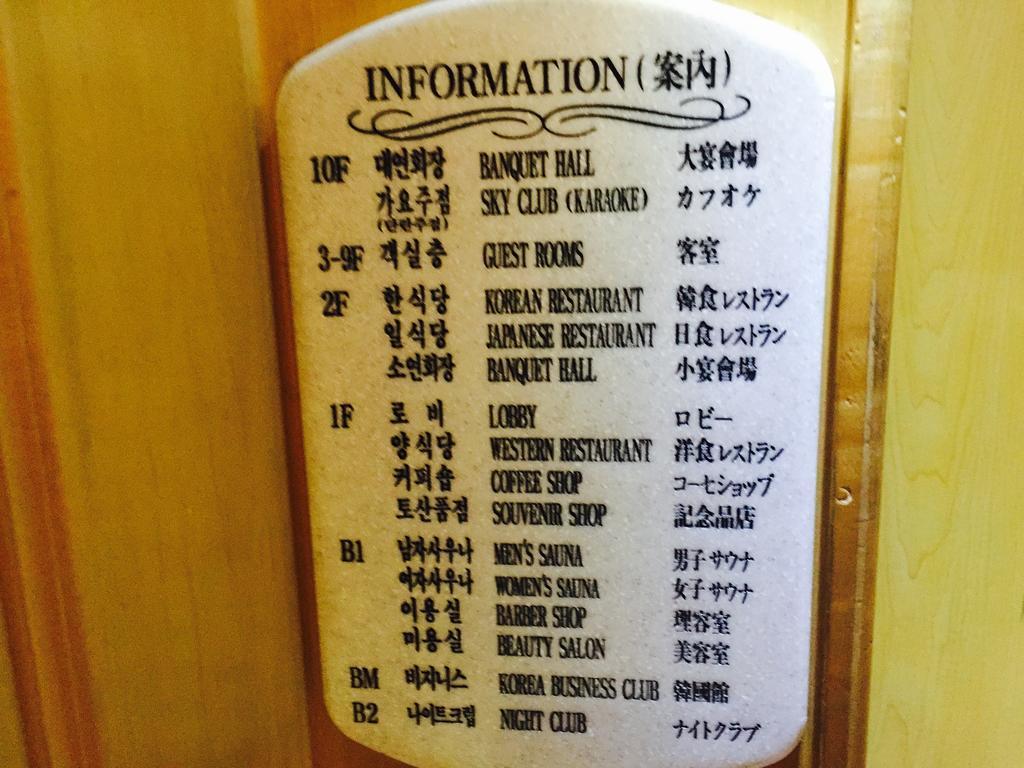 INFORMATION (案內)
10F 대연회장 BANQUET HALL 大宴會場
가요주점 SKY CLUB (KARAOKE) カフオケ
(단란주점)
3-9F 객실층 GUEST ROOMS 客室
2F 한식당 KOREAN RESTAURANT 韓食レストラン
일식당 JAPANESE RESTAURANT 日食レストラン
소연회장 BANQUET HALL 小宴會場
1F 로비 LOBBY ロビー
양식당 WESTERN RESTAURANT 洋食レストラン
커피숍 COFFEE SHOP コーヒショップ
토산품점 SOUVENIR SHOP 記念品店
B1 남자사우나 MEN'S SAUNA 男子サウナ
여자사우나 WOMEN'S SAUNA 女子サウナ
이용실 BARBER SHOP 理容室
미용실 BEAUTY SALON 美容室
BM 비지니스 KOREA BUSINESS CLUB 韓國館
B2 나이트크럽 NIGHT CLUB ナイトクラブ